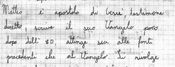 Matteo è apostolo di Gesù, testimone
diretto, scrive il suo Vangelo poco
dopo dell' 80, attinge sia alle fonti
precedenti che al Vangelo Si rivolge